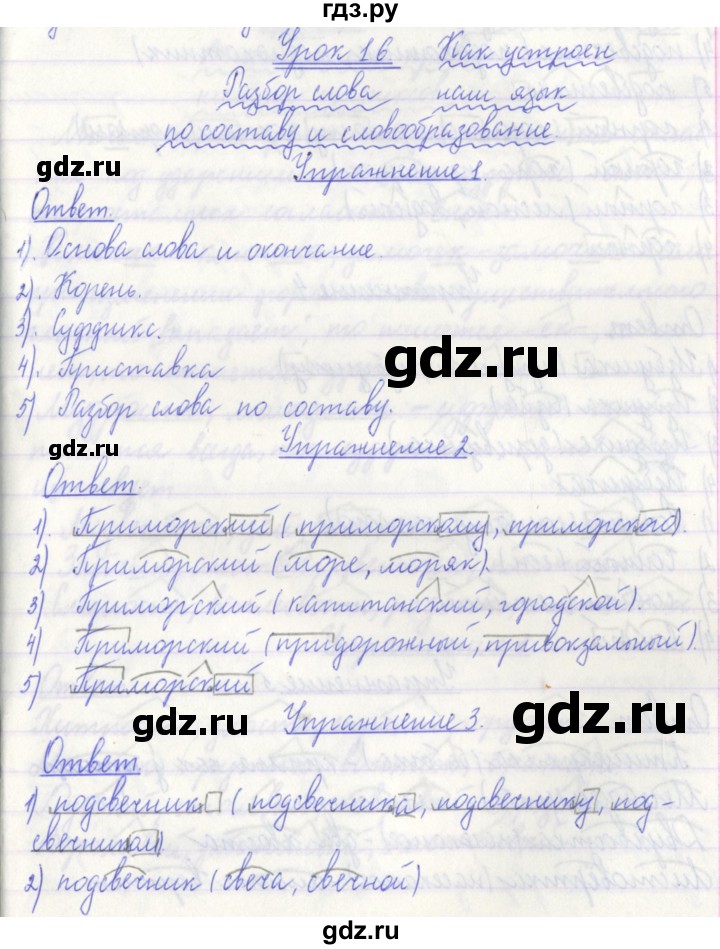 гдз.ру
Урок 16 Как устроен
Разбор слова наш язык
по составу и словообразование.
Упражнение 1.
gdz.ru
Ответ.
1). Основа слова и окончание.
2). Корень.
3). Суффикс.
4). Приставка
gdz.ru
5) Разбор слова по составу.
gdz.ru
Упражнение 2.
Ответ.
1). Приморский (приморскому, приморского).
2) Приморский (море, моряк).
3) Приморский (капитанский, городской).
4) Приморский (придорожный, привокзальный).
5) Приморский
gdz.ru
gdz.ru
Упражнение 3.
Ответ
1) подсвечник (подсвечника, подсвечнику, под-
свечником)
2) подсвечник (свеча, свечной)
gdz.ru